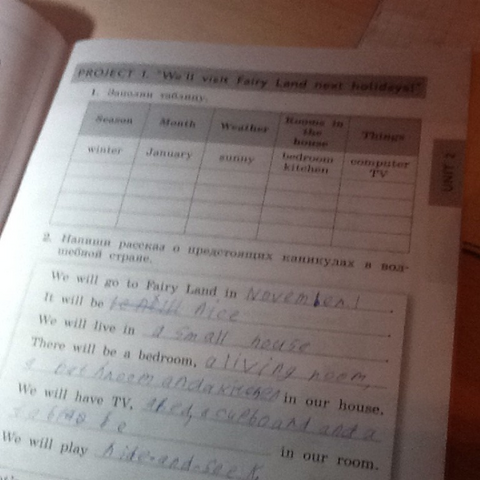 PROJECT 1. "We'll visit Fairy Land next holidays!"
1. Заполни таблицу.
Season Month Weather Rooms in the house Things
winter January sunny bedroom kitchen computer TV
UNIT 2
2. Напиши рассказ о предстоящих каникулах в вол-
шебной стране.
We will go to Fairy Land in November.
It will be nice
We will live in a small house
There will be a bedroom, a living room,
a bathroom and a kitchen in our house.
We will have TV, a bed, a cupboard and a
in our room.
We will play hide-and-seek.